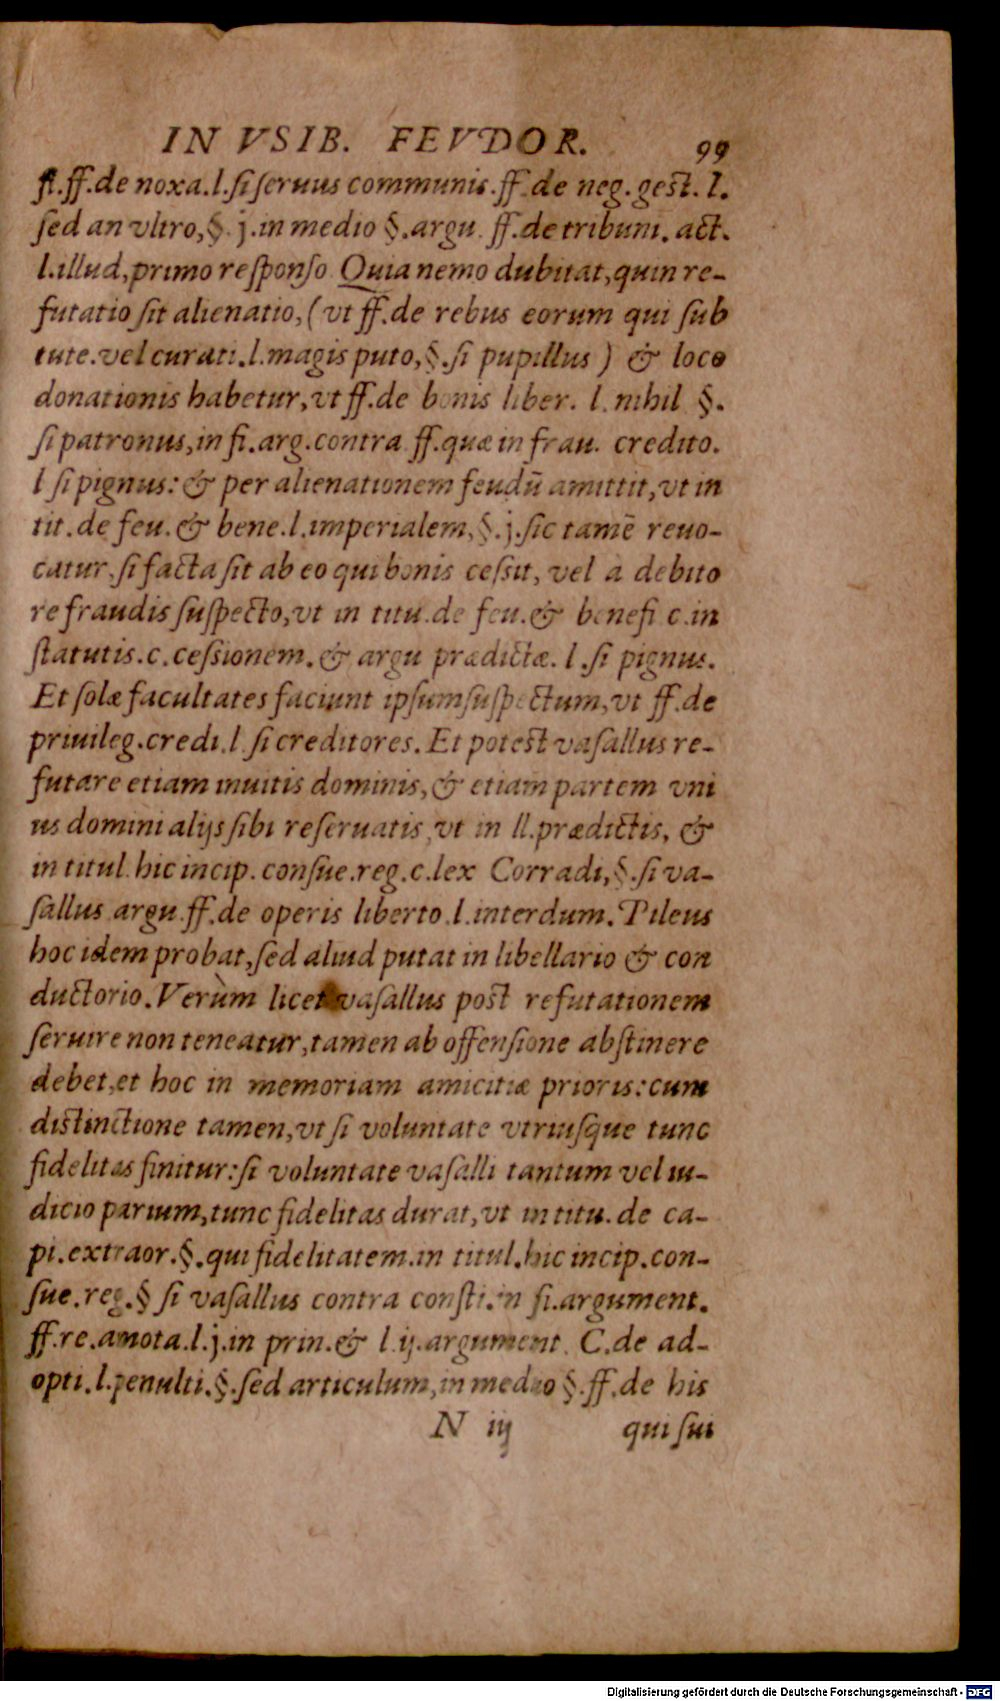 IN VSIB. FEVDOR. 99
fl.ff.de noxa.l.ſi ſeruus communis.ff.de neg.geſt. l.
ſed an vltro,§. j.in medio §.argu. ff.de tribuni. act.
l.illud,primo reſponſo Quia nemo dubitat,quin re-
futatio ſit alienatio,(vt ff.de rebus eorum qui ſub
tute.vel curati.l.magis puto,§.ſi pupillus ) & loco
donationis habetur,vt ff.de bonis liber. l. nihil §.
ſi patronus,in fi.arg.contra ff.quæ in frau. credito.
l ſi pignus: & per alienationem feudū amittit,vt in
tit.de feu.& bene.l.imperialem,§.j.ſic tamē reuo-
catur,ſi facta ſit ab eo qui bonis ceſsit, vel à debito
re fraudis ſuſpecto,vt in titu.de feu.& benefi c.in
ſtatutis.c.ceſsionem.& argu prædictæ. l.ſi pignus.
Et ſolæ facultates faciunt ipſum ſuſpectum,vt ff.de
priuileg.credi.l.ſi creditores. Et poteſt vaſallus re-
futare etiam inuitis dominis,& etiam partem vni
us domini alijs ſibi reſeruatis,vt in ll.prædictis, &
in titul.hic incip.conſue.reg.c.lex Corradi,§.ſi va-
ſallus argu.ff.de operis liberto.l.interdum. Pileus
hoc idem probat,ſed aliud putat in libellario & con
ductorio. Verùm licet vaſallus poſt refutationem
ſeruire non teneatur,tamen ab offenſione abſtinere
debet,et hoc in memoriam amicitiæ prioris: cum
diſtinctione tamen,vt ſi voluntate vtriuſque tunc
fidelitas finitur: ſi voluntate vaſalli tantum vel iu-
dicio parium,tunc fidelitas durat,vt in titu.de ca-
pi.extraor.§.qui fidelitatem.in titul.hic incip.con-
ſue.reg.§ ſi vaſallus contra conſti.in fi.argument.
ff.re.amota.l.j.in prin.& l.ij.argument. C.de ad-
opti.l.penulti.§.ſed articulum,in medio §.ff.de his
N iij qui ſui
Digitalisierung gefördert durch die Deutsche Forschungsgemeinschaft - DFG